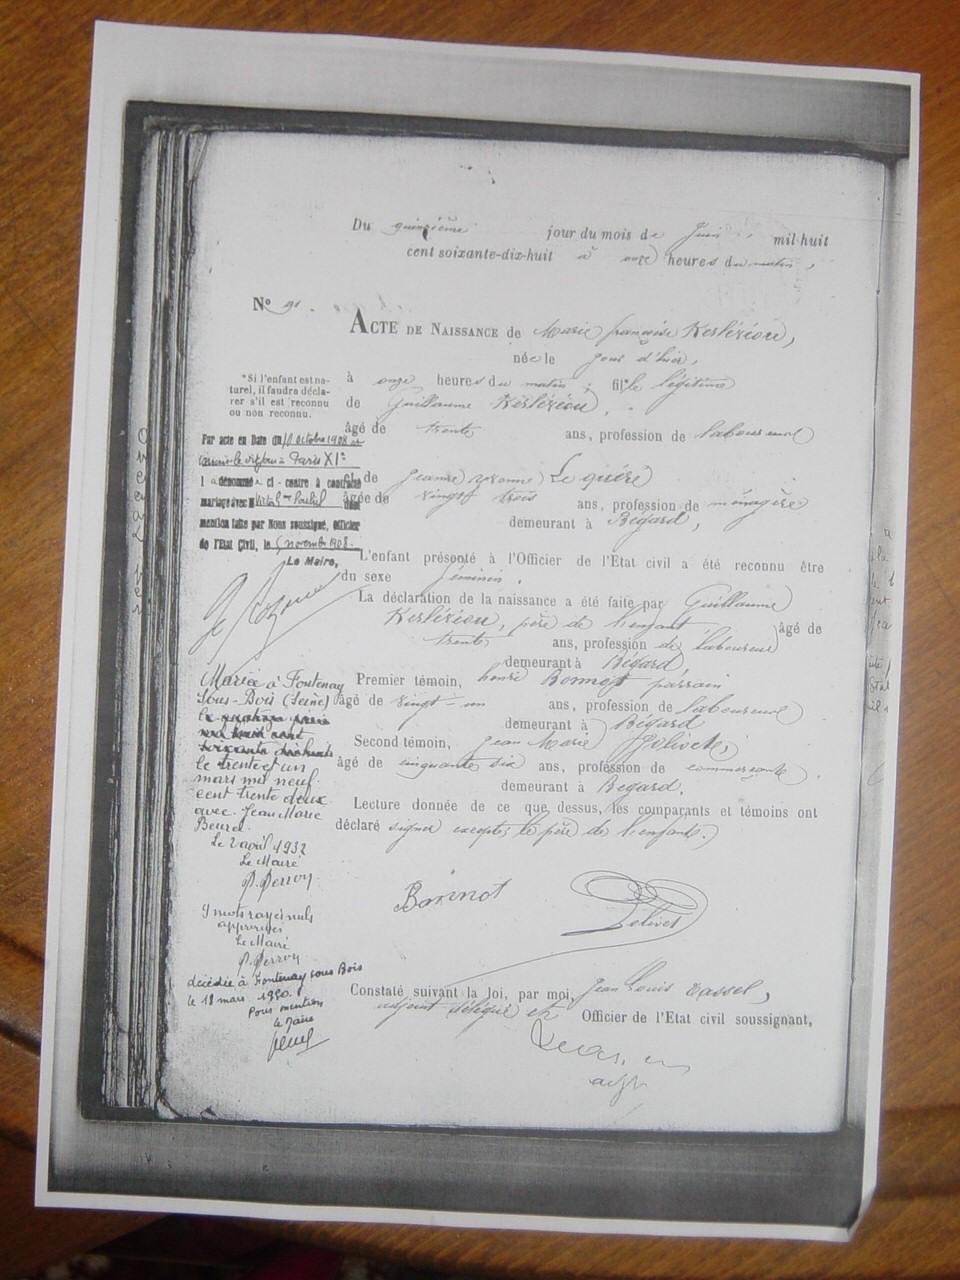 Du quinzième jour du mois de Juin, mil huit
cent soixante-dix-huit à onze heures du matin,
No 91.
ACTE DE NAISSANCE de Marie françoise Kerlézéou,
née le jour d'hier,
à onze heures du matin ; fille légitime
de Guillaume Kerlézéou,
âgé de trente ans, profession de laboureur
et de Jeanne yvonne Le quéré
âgée de vingt trois ans, profession de ménagère
demeurant à Bégard,
L'enfant présenté à l'Officier de l'Etat civil a été reconnu être
du sexe féminin.
La déclaration de la naissance a été faite par Guillaume
Kerlézéou, père de l'enfant âgé de
trente ans, profession de laboureur
demeurant à Bégard,
Premier témoin, Bonnot parrain
âgé de vingt-un ans, profession de laboureur
demeurant à Bégard
Second témoin, Jean Marie Jolivet,
âgé de cinquante six ans, profession de commerçant
demeurant à Bégard.
Lecture donnée de ce que dessus, les comparants et témoins ont
déclaré signer excepté le père de l'enfant.
Bonnot Jolivet
Constaté suivant la loi, par moi, Jean Louis Tassel,
adjoint délégué Officier de l'Etat civil soussignant,
*Si l'enfant est na-
turel, il faudra décla-
rer s'il est reconnu
ou non reconnu.
Par acte en Date du octobre 1908
à Paris XIe
l a dénommé ci-contre à contracté
mariage avec M
mention faite par Nous soussigné, Officier
de l'Etat Civil, le 5 novembre 1908.
Le Maire,
Mariée à Fontenay
Sous-Bois (Seine)
le quatorze juin
mil huit cent
soixante dix huit
le trente et un
mars mil neuf
cent trente deux
avec Jean Marie
Beurel.
Le 2 avril 1932
Le Maire
P. Perrou
9 mots rayés nuls
approuvés
Le Maire
P. Perrou
décédée à Fontenay sous Bois
le 18 mars 1950.
Pour mention
le Maire